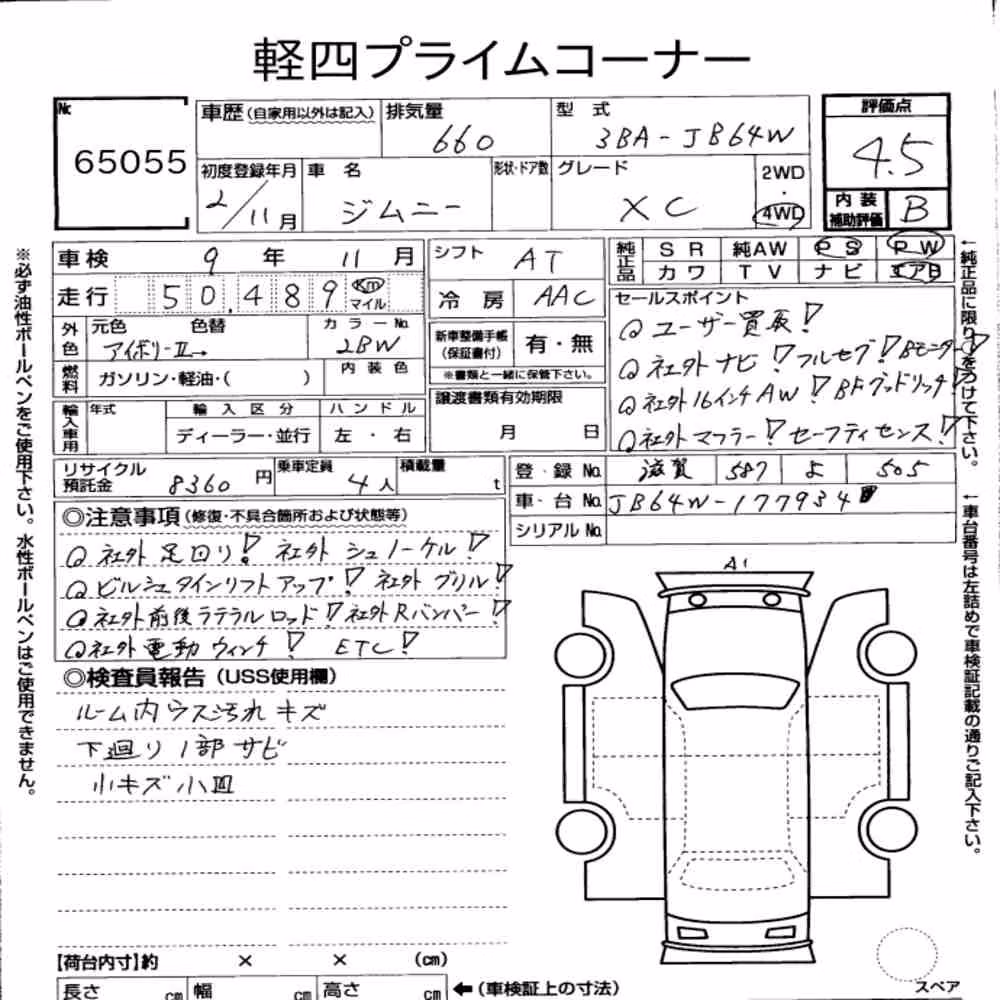 軽四プライムコーナー
No. 65055
車歴(自家用以外は記入) 排気量 660 型式 3BA-JB64W
評価点 4.5
初度登録年月 2/11月 車名 ジムニー 形状・ドア数 グレード XC 2WD・4WD
内装補助評価 B
車検 9年 11月 シフト AT 純正品 SR 純AW PS PW
カワ TV ナビ エアB
走行 50,489 Km マイル 冷房 AAC
外色 元色 色替 カラーNo.
アイボリーII→ 2BW
新車整備手帳(保証書付) 有・無
※書類と一緒に保管下さい。
燃料 ガソリン・軽油・( ) 内装色
輸入車用 年式 輸入区分 ハンドル
ディーラー・並行 左・右
譲渡書類有効期限
月 日
セールスポイント
ユーザー買取!
社外ナビ!フルセグ!Bモニター!
社外16インチAW!BFグッドリッチ!
社外マフラー!セーフティセンス!
リサイクル預託金 8360円 乗車定員 4人 積載量 t
登録No. 滋賀 587 よ 505
車台No. JB64W-177934
シリアルNo.
◎注意事項(修復・不具合箇所および状態等)
社外足回り!社外シュノーケル!
ビルシュタインリフトアップ!社外グリル!
社外前後ラテラルロッド!社外Rバンパー!
社外電動ウィンチ! ETC!
◎検査員報告(USS使用欄)
ルーム内ウス汚れキズ
下廻り1部サビ
小キズ小凹
A1
【荷台内寸】約 × × (cm)
長さ cm 幅 cm 高さ cm ←(車検証上の寸法)
スペア
※必ず油性ボールペンをご使用下さい。水性ボールペンはご使用できません。
←純正品に限り○をつけて下さい。
←車台番号は左詰めで車検証記載の通りご記入下さい。